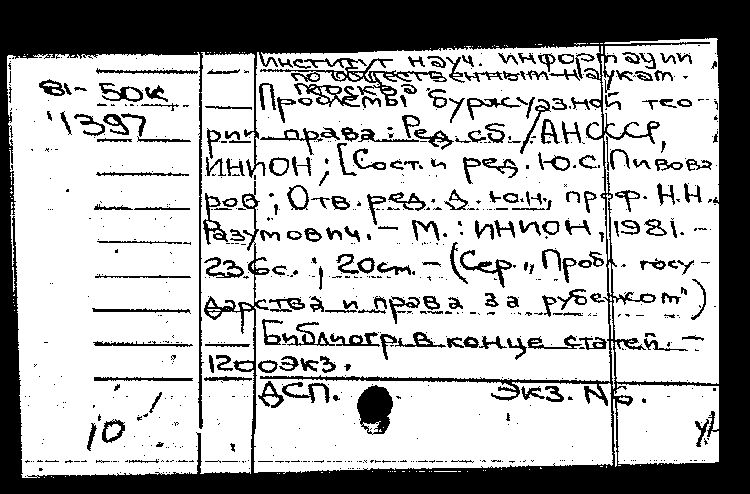 Институт науч. информации
по общественным наукам.
Москва.
81-50к
1397
Проблемы буржуазной тео-
рии права: Ред. сб. / АНСССР,
ИНИОН; [Сост. и ред. Ю.С. Пивова
ров; Отв. ред. д.ю.н., проф. Н.Н.
Разумович. - М.: ИНИОН, 1981. -
236с.; 20см. - (Сер. „Пробл. госу-
дарства и права за рубежом")
Библиогр. в конце статей. -
1200экз.
ДСП. Экз. N6.
10